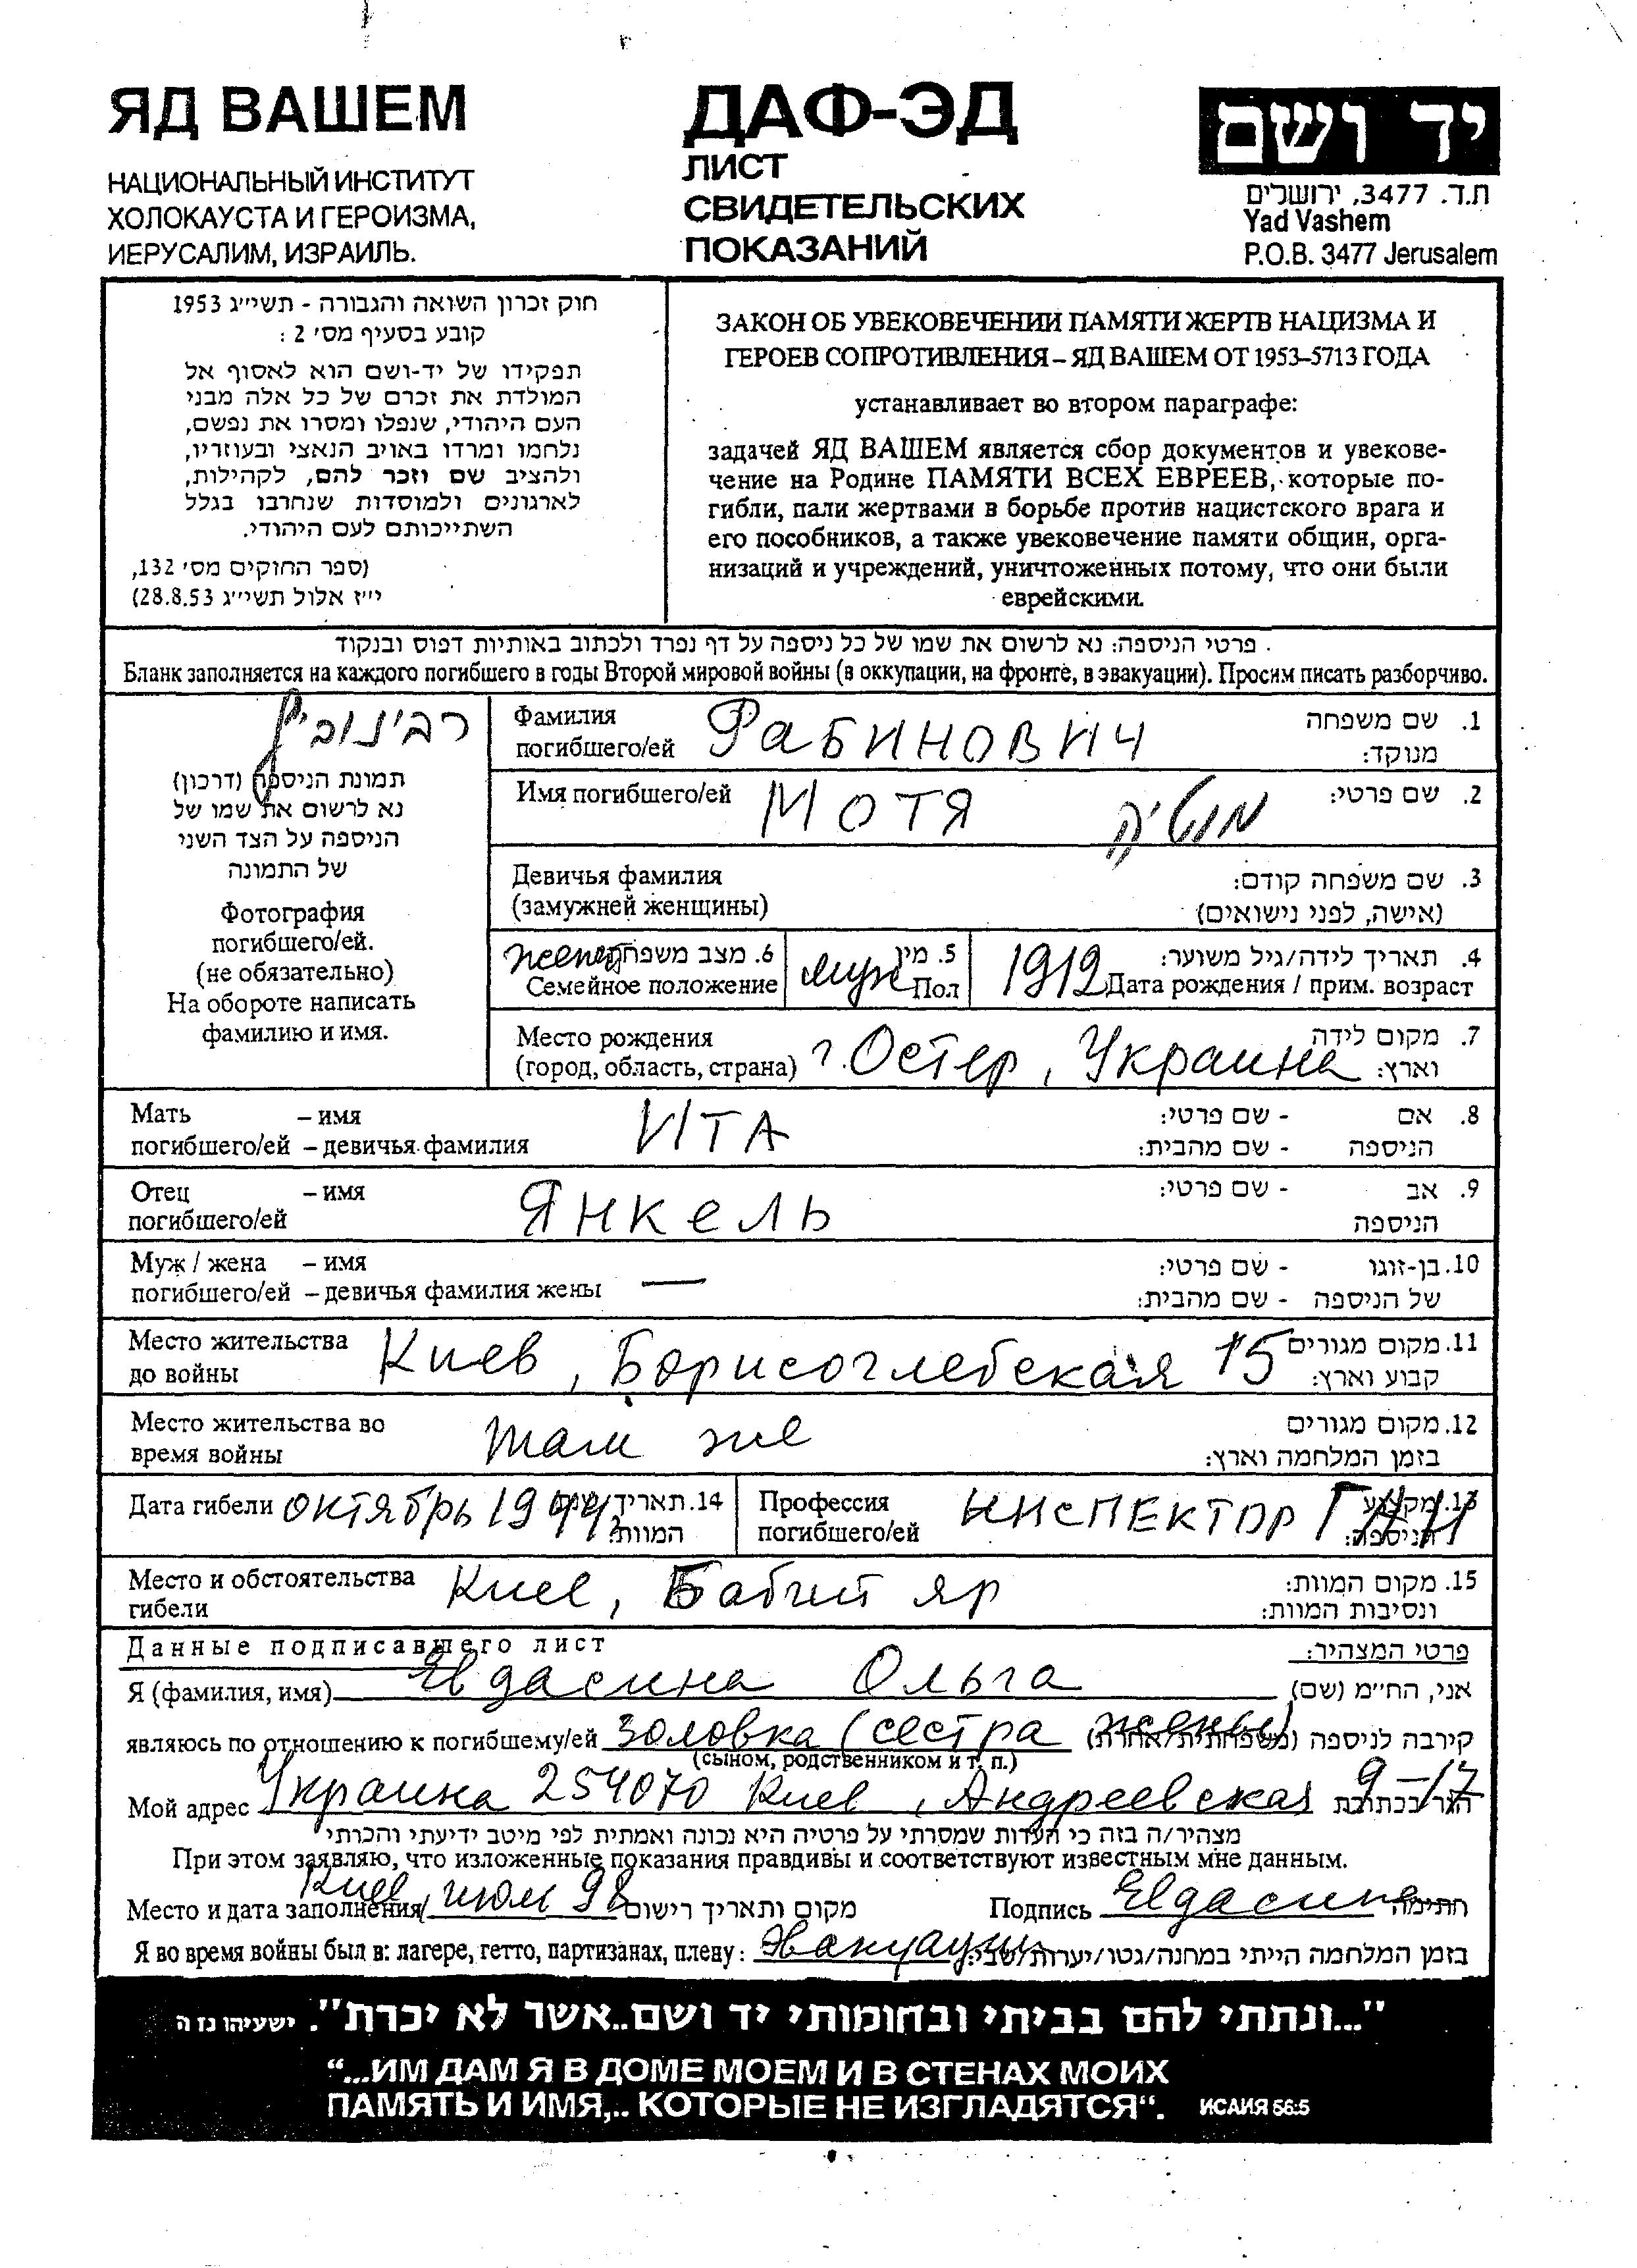 ЯД ВАШЕМ
НАЦИОНАЛЬНЫЙ ИНСТИТУТ
ХОЛОКАУСТА И ГЕРОИЗМА,
ИЕРУСАЛИМ, ИЗРАИЛЬ.
ДАФ-ЭД
ЛИСТ
СВИДЕТЕЛЬСКИХ
ПОКАЗАНИЙ
יד ושם
ת.ד. 3477, ירושלים
Yad Vashem
P.O.B. 3477 Jerusalem
חוק זכרון השואה והגבורה - תשי״ג 1953
קובע בסעיף מס׳ 2 :
תפקידו של יד-ושם הוא לאסוף אל
המולדת את זכרם של כל אלה מבני
העם היהודי, שנפלו ומסרו את נפשם,
נלחמו ומרדו באויב הנאצי ובעוזריו,
ולהציב שם וזכר להם, לקהילות,
לארגונים ולמוסדות שנחרבו בגלל
השתייכותם לעם היהודי.
(ספר החוקים מס׳ 132,
י״ז אלול תשי״ג 28.8.53)
ЗАКОН ОБ УВЕКОВЕЧЕНИИ ПАМЯТИ ЖЕРТВ НАЦИЗМА И
ГЕРОЕВ СОПРОТИВЛЕНИЯ – ЯД ВАШЕМ ОТ 1953–5713 ГОДА
устанавливает во втором параграфе:
задачей ЯД ВАШЕМ является сбор документов и увекове-
чение на Родине ПАМЯТИ ВСЕХ ЕВРЕЕВ, которые по-
гибли, пали жертвами в борьбе против нацистского врага и
его пособников, а также увековечение памяти общин, орга-
низаций и учреждений, уничтоженных потому, что они были
еврейскими.
פרטי הניספה: נא לרשום את שמו של כל ניספה על דף נפרד ולכתוב באותיות דפוס ובנקוד
Бланк заполняется на каждого погибшего в годы Второй мировой войны (в оккупации, на фронте, в эвакуации). Просим писать разборчиво.
רבינוביץ
תמונת הניספה (דרכון)
נא לרשום את שמו של
הניספה על הצד השני
של התמונה
Фотография
погибшего/ей.
(не обязательно)
На обороте написать
фамилию и имя.
Фамилия
погибшего/ей РАБИНОВИЧ 1. שם משפחה
מנוקד:
Имя погибшего/ей МОТЯ מוטיה 2. שם פרטי:
Девичья фамилия 3. שם משפחה קודם:
(замужней женщины) (אישה, לפני נישואים)
женат 6. מצב משפחתי муж 5. מין 1912 4. תאריך לידה/גיל משוער:
Семейное положение Пол Дата рождения / прим. возраст
Место рождения 7. מקום לידה
(город, область, страна) г. Остер, Украина וארץ:
Мать – имя ИТА 8. אם - שם פרטי:
погибшего/ей – девичья фамилия הניספה - שם מהבית:
Отец – имя ЯНКЕЛЬ 9. אב - שם פרטי:
погибшего/ей הניספה
Муж / жена – имя 10. בן-זוגו - שם פרטי:
погибшего/ей – девичья фамилия жены — של הניספה - שם מהבית:
Место жительства Киев, Борисоглебская 15 11. מקום מגורים
до войны קבוע וארץ:
Место жительства во там же 12. מקום מגורים
время войны בזמן המלחמה וארץ:
Дата гибели октябрь 14. תאריך
המוות:
Профессия ИНСПЕКТОР 13. מקצוע
погибшего/ей הניספה:
Место и обстоятельства Киев, Бабий яр 15. מקום המוות:
гибели ונסיבות המוות:
Данные подписавшего лист פרטי המצהיר:
Я (фамилия, имя) Ольга אני, הח״מ (שם)
являюсь по отношению к погибшему/ей золовка (сестра жены) קירבה לניספה (משפחתית/אחרת)
(сыном, родственником и т. п.)
Мой адрес Украина 254070 Киев, Андреевская 9-17 הגר בכתובת
מצהיר/ה בזה כי העדות שמסרתי על פרטיה היא נכונה ואמתית לפי מיטב ידיעתי והכרתי
При этом заявляю, что изложенные показания правдивы и соответствуют известным мне данным.
Место и дата заполнения Киев, מקום ותאריך רישום Подпись חתימה
Я во время войны был в: лагере, гетто, партизанах, плену: Эвакуации בזמן המלחמה הייתי במחנה/גטו/יערות/שבי:
"...ונתתי להם בביתי ובחומותי יד ושם..אשר לא יכרת". ישעיהו נז ה
“...ИМ ДАМ Я В ДОМЕ МОЕМ И В СТЕНАХ МОИХ
ПАМЯТЬ И ИМЯ,.. КОТОРЫЕ НЕ ИЗГЛАДЯТСЯ“. ИСАИЯ 56:5